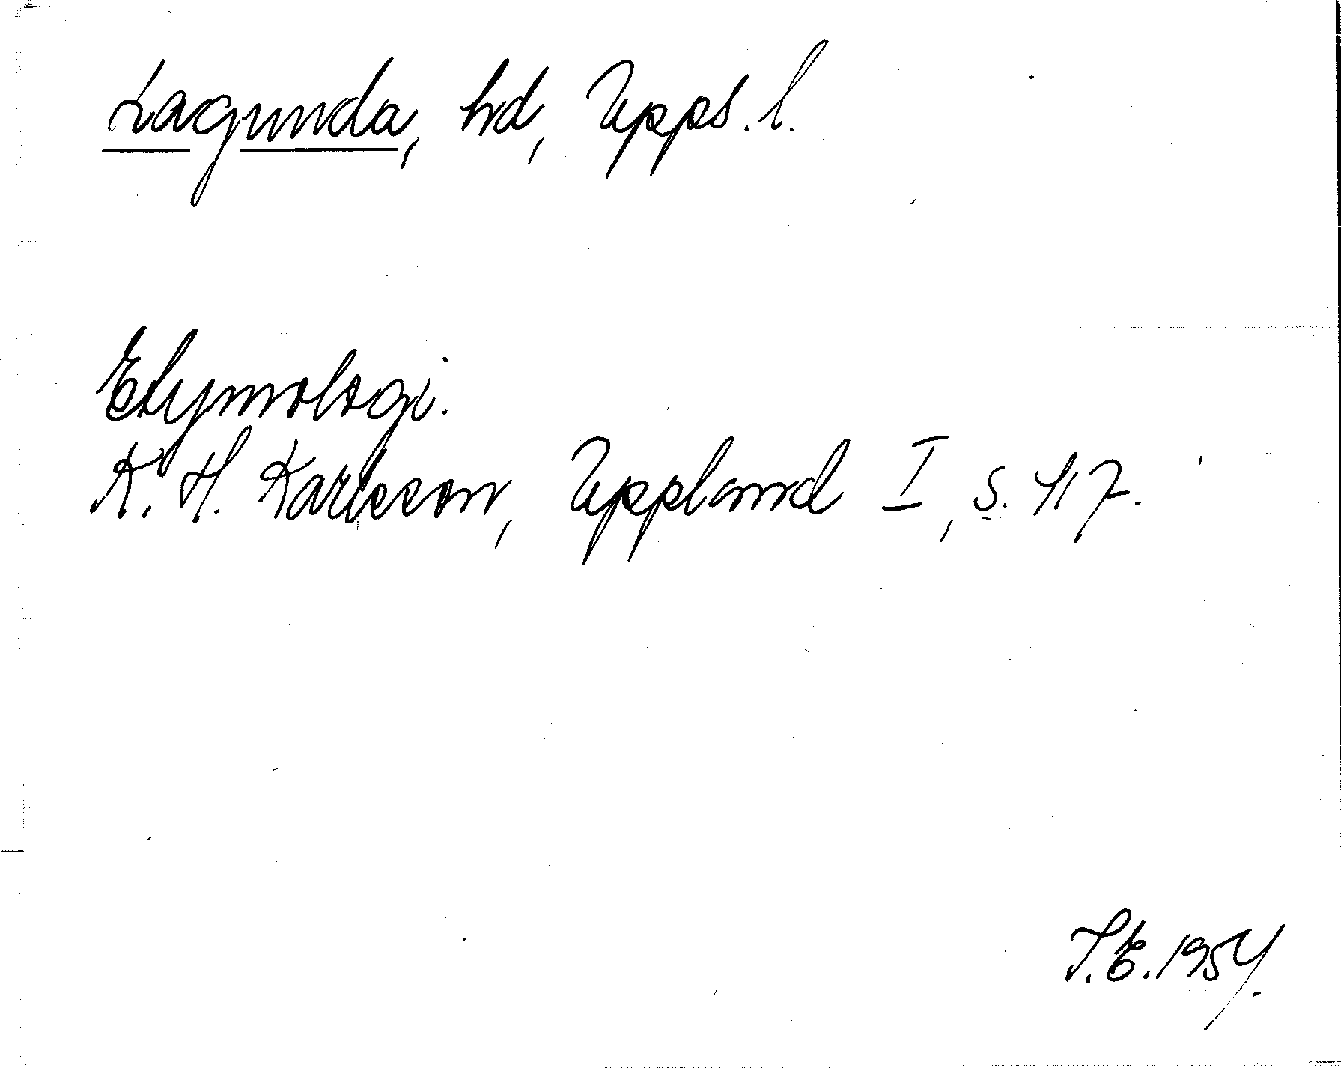 Lagunda, hd, Upps. l.
Etymologi.
K. H. Karlsson, Uppland I, s. 417.
T.E. 1954.